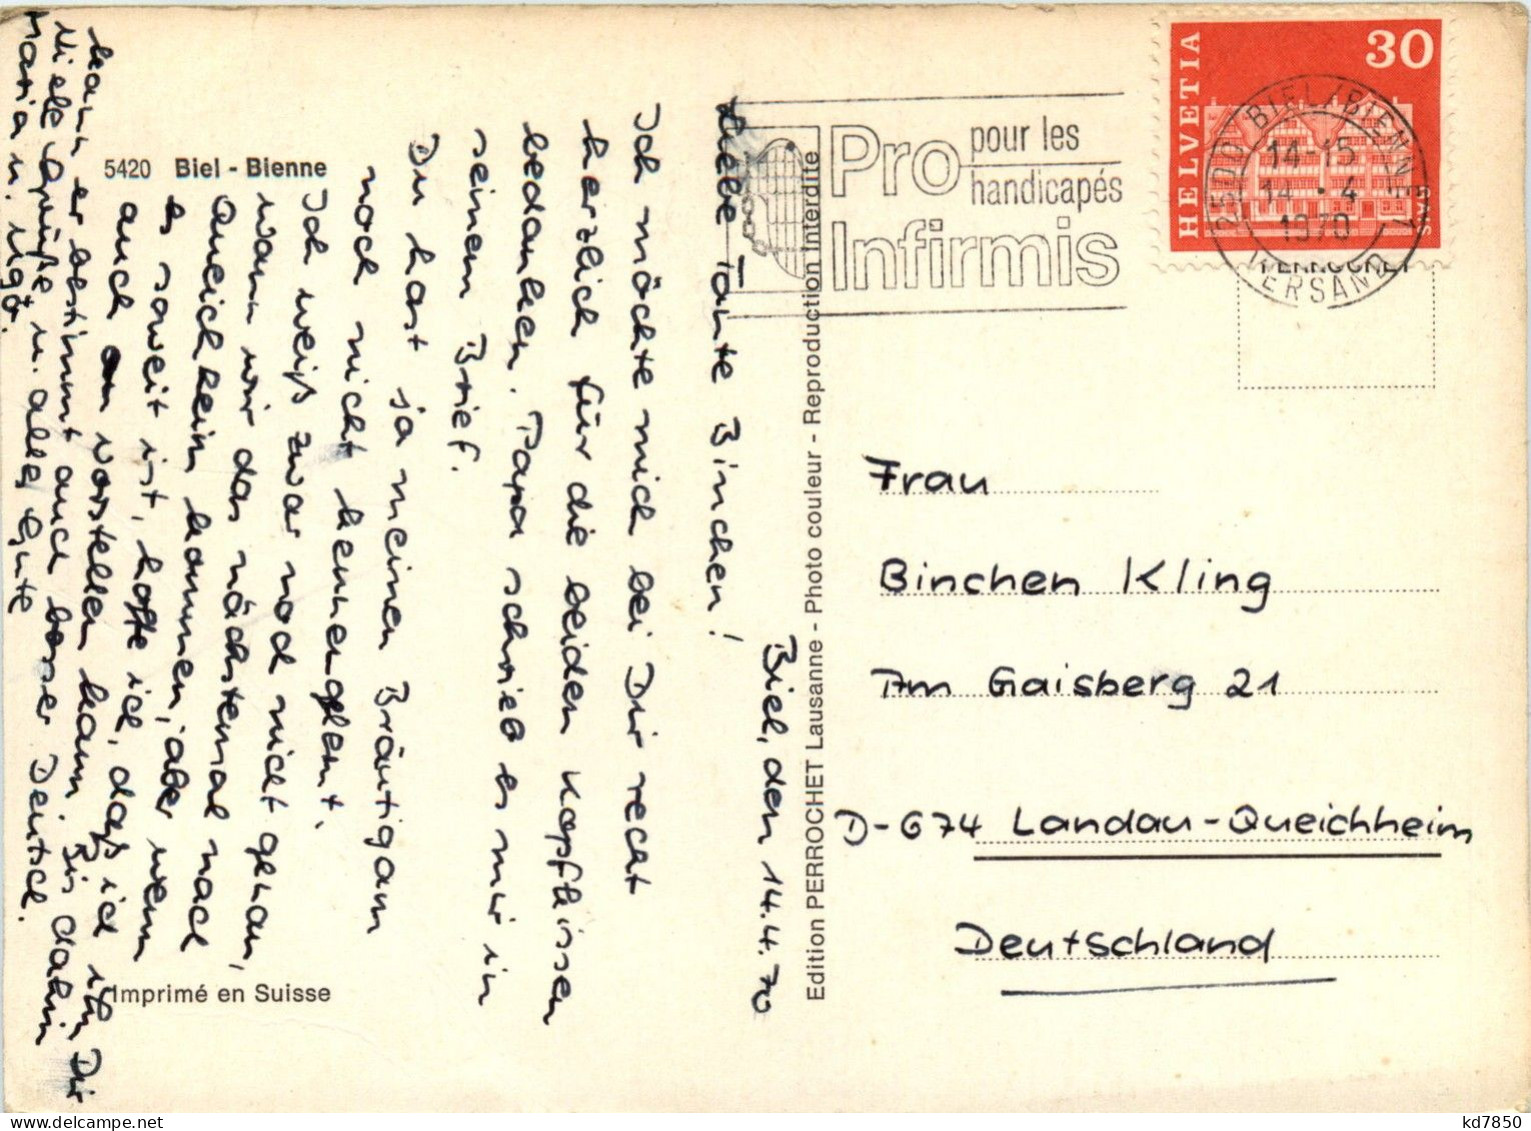 5420 Biel - Bienne
Biel, den 14.4.70
Liebe Tante Binchen!
Ich möchte mich bei Dir recht
herzlich für die beiden Kopfkissen
bedanken. Papa schrieb es mir in
seinem Brief.
Du hast ja meinen Bräutigam
noch nicht kennengelernt.
Ich weiß zwar noch nicht genau,
wann wir das nächstemal nach
Queichheim kommen, aber wenn
es soweit ist, hoffe ich, daß ich ihn Dir
auch vorstellen kann. Bis dahin
kann er bestimmt auch besser Deutsch.
Viele Grüße u. alles Gute
Maria u. Ugo.
Imprimé en Suisse
Edition PERROCHET Lausanne - Photo couleur - Reproduction Interdite
Pro
Infirmis
pour les
handicapés
HELVETIA
30
S.175
2500 BIEL/BIENNE 1
14-15
14.-4
1970
VERSAND
PERROCHET
Frau
Binchen Kling
Am Gaisberg 21
D-674 Landau-Queichheim
Deutschland
kd7850